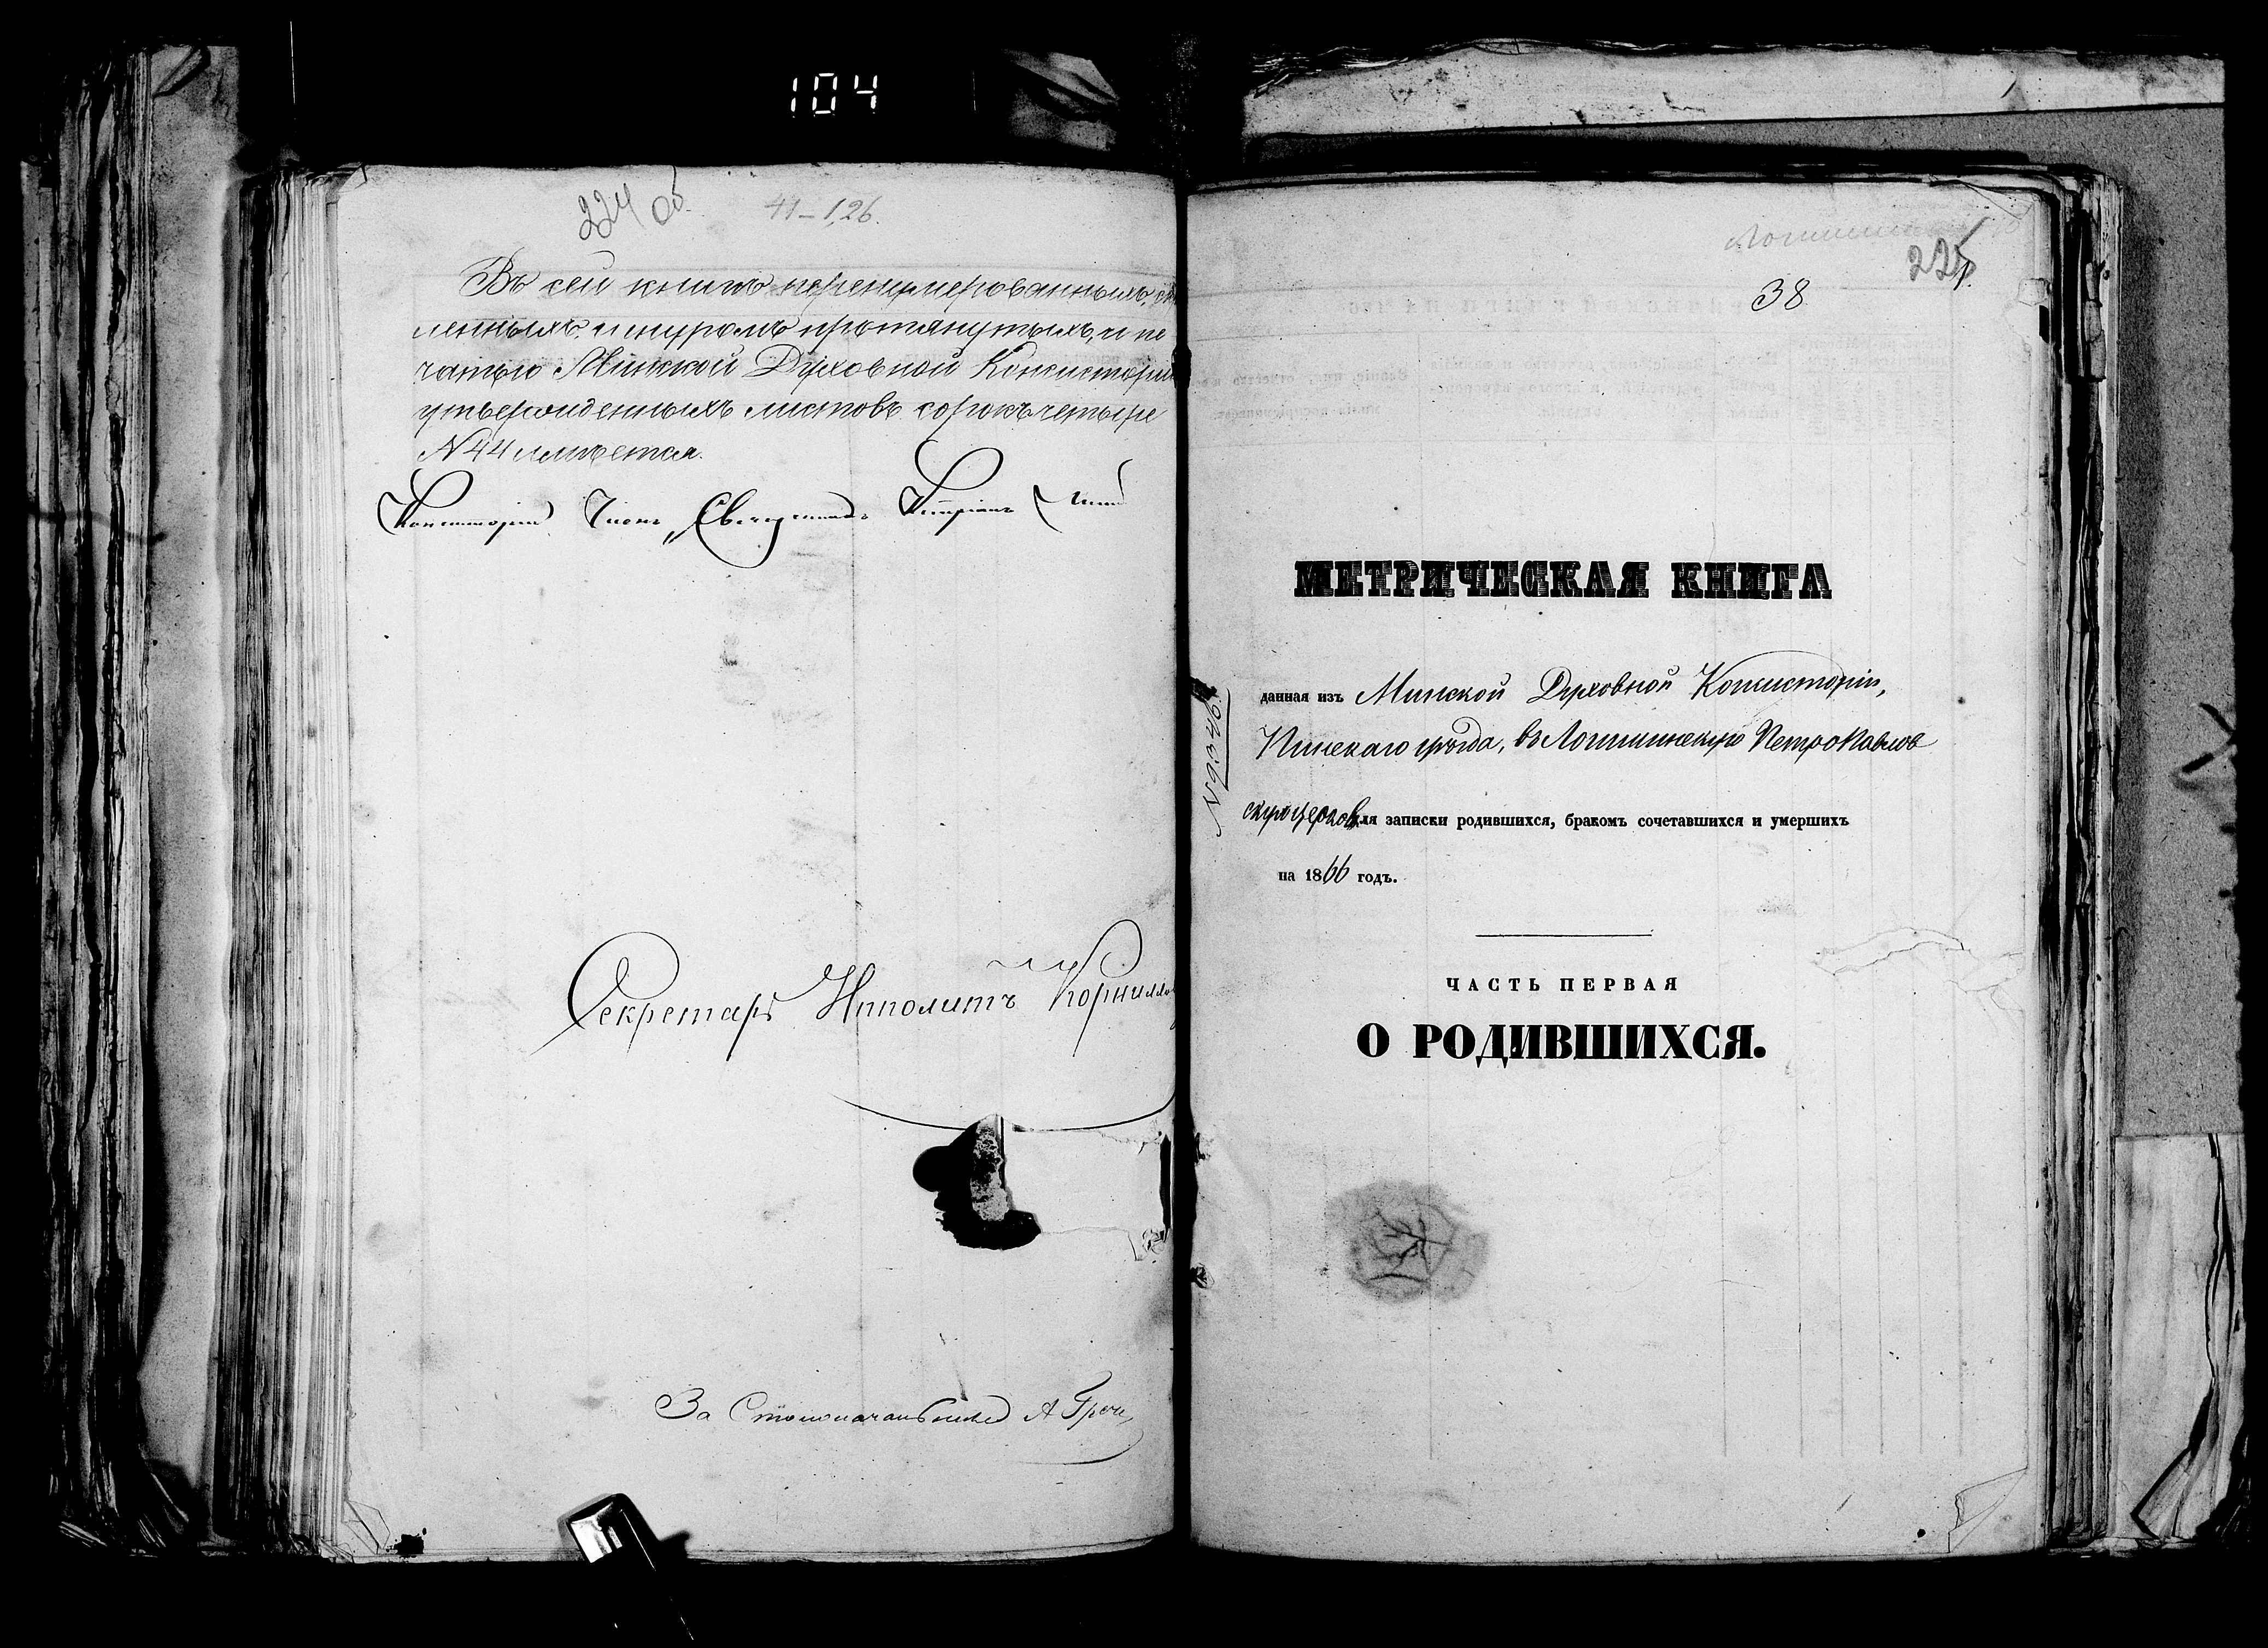 104
224 об.
41-126.
Въ сей книгѣ перенумерованныхъ,
ленныхъ, шнуромъ протянутыхъ, и пе
чатью Минской Духовной Консисторіи
утвержденныхъ листовъ сорокъ четыре
N 44 имѣется.
Консисторіи Членъ, Священникъ
Секретарь Ипполитъ Корнилло
За Столоначальника А
38
225
МЕТРИЧЕСКАЯ КНИГА
данная изъ Минской Духовной Консисторіи,
Пинскаго уѣзда, въ Логишинскую Петропавлов
скую церковь для записки родившихся, бракомъ сочетавшихся и умершихъ
на 1866 годъ.
N 9346.
ЧАСТЬ ПЕРВАЯ
О РОДИВШИХСЯ.